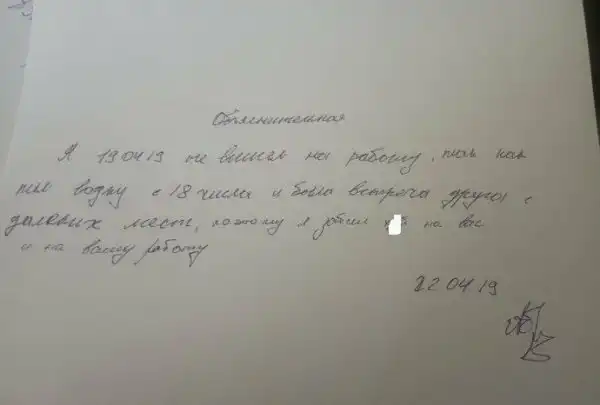 Объяснительная
Я 19 04 19 не вышел на работу, так как
пил водку с 18 числа и была встреча друга с
далёких мест, поэтому я забил на вас
и на вашу работу
22 04 19